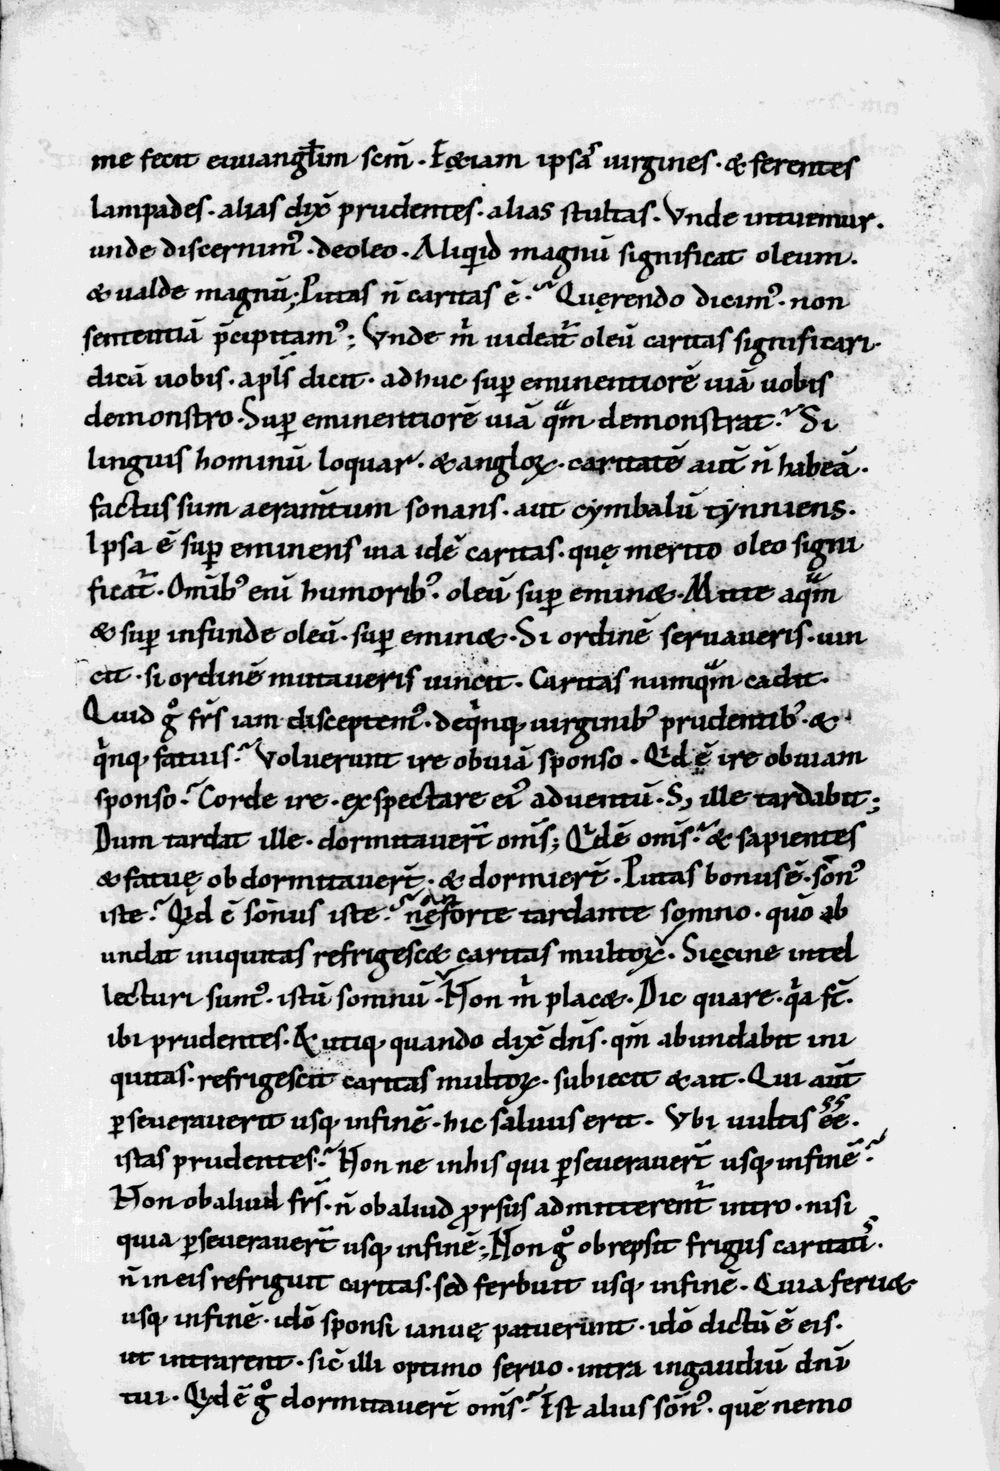 me fecit euuangłim scm̄ · Ęt iam ipsas uirgines · & ferentes
lampades · alias dix̄ prudentes · alias stultas · Vnde intuemur ·
unde discernimꝰ · de oleo · Aliqid magnū significat oleum ·
& ualde magnū; Putas n̄ caritas ē · Quęrendo dicimꝰ · non
sententiā p̄cipitamꝰ; Vnde m̄ uideat̄ oleū caritas significari ·
dicā uobis · apłs dicit · adhuc suꝑ eminentiorē uiā uobis
demonstro · Suꝑ eminentiorē uiā qm̄ demonstrat · Si
linguis hominū loquar · & angloꝝ · caritatē aut̄ n̄ habeā ·
factus sum aeram̄tum sonans · aut cymbalū tynniens ·
Ipsa ē suꝑ eminens uia idē caritas · quę merito oleo signi
ficat̄ · Omībꝰ enī humoribꝰ · oleū suꝑ emin& · Mitte aqm̄
& suꝑ infunde oleū · suꝑ emin& · Si ordinē seruaueris · uin
cit · si ordinē mutaueris uincit · Caritas numqm̄ cadit ·
Quid gͦ fr̄s iam disceptemꝰ · de qinqꝫ uirginibꝰ prudentibꝰ · &
qinqꝫ fatuis · Voluerunt ire obuiā sponso · Qid ē ire obuiam
sponso · Corde ire · exspectare eiꝰ aduentū · Sꝫ ille tardabit;
Dum tardat ille · dormitauer̄t om̄s; Qid ē om̄s · & sapientes
& fatuę obdormitauer̄t · & dormier̄t · Putas bonus ē · sōnꝰ
iste · Qid ē sōnus iste · an ne forte tardante somno · quō ab
undat iniquitas refrigesc& caritas multoꝝ · Siccine intel
lecturi sumꝰ · istū somnū · Non m̄ plac& · Dic quare · qa s̄t
ibi prudentes · & utiqꝫ quando dix̄ dn̄s · qm̄ abundabit ini
quitas · refrigescit caritas multoꝝ · subiecit & ait · Qui aut̄
ꝑseuerauerit usqꝫ in finē · hic saluus erit · Vbi uultis ēē ·
istas prudentes · Non ne in his qui ꝑseuerauer̄t usqꝫ in finē ·
Non ob aliud fr̄s · n̄ ob aliud ꝓrsus admitterent̄ intro · nisi
quia ꝑseuerauer̄t usqꝫ in finē; Non gͦ obrepsit frigus caritatis ·
n̄ in eis refriguit caritas · sed ferbuit usqꝫ in finē · Quia feru&
usqꝫ in finē · idō sponsi ianuę patuerunt · idō dictū ē eis ·
ut intrarent · sic̄ illi optimo seruo · intra in gaudiū dn̄i
tui · Qid ē gͦ dormitauer̄t om̄s · Est alius sōnꝰ · quē nemo